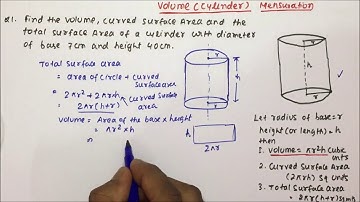 Volume (Cylinder) Mensuration
Q1. Find the volume, curved surface Area and the
total surface Area of a cylinder with diameter
of base 7cm and height 40cm.
Total surface area
= area of circle + curved
surface area
= 2πr² + 2πrh
= 2πr(h+r)
curved surface
area
Volume = Area of the base × height
= πr² × h
=
h
r
h
2πr
h
r
Let radius of base = r
height (or length) = h
then
1. Volume = πr²h cube
units
2. Curved Surface Area
(2πrh) sq units
3. Total Surface Area
= 2πr(h+r)